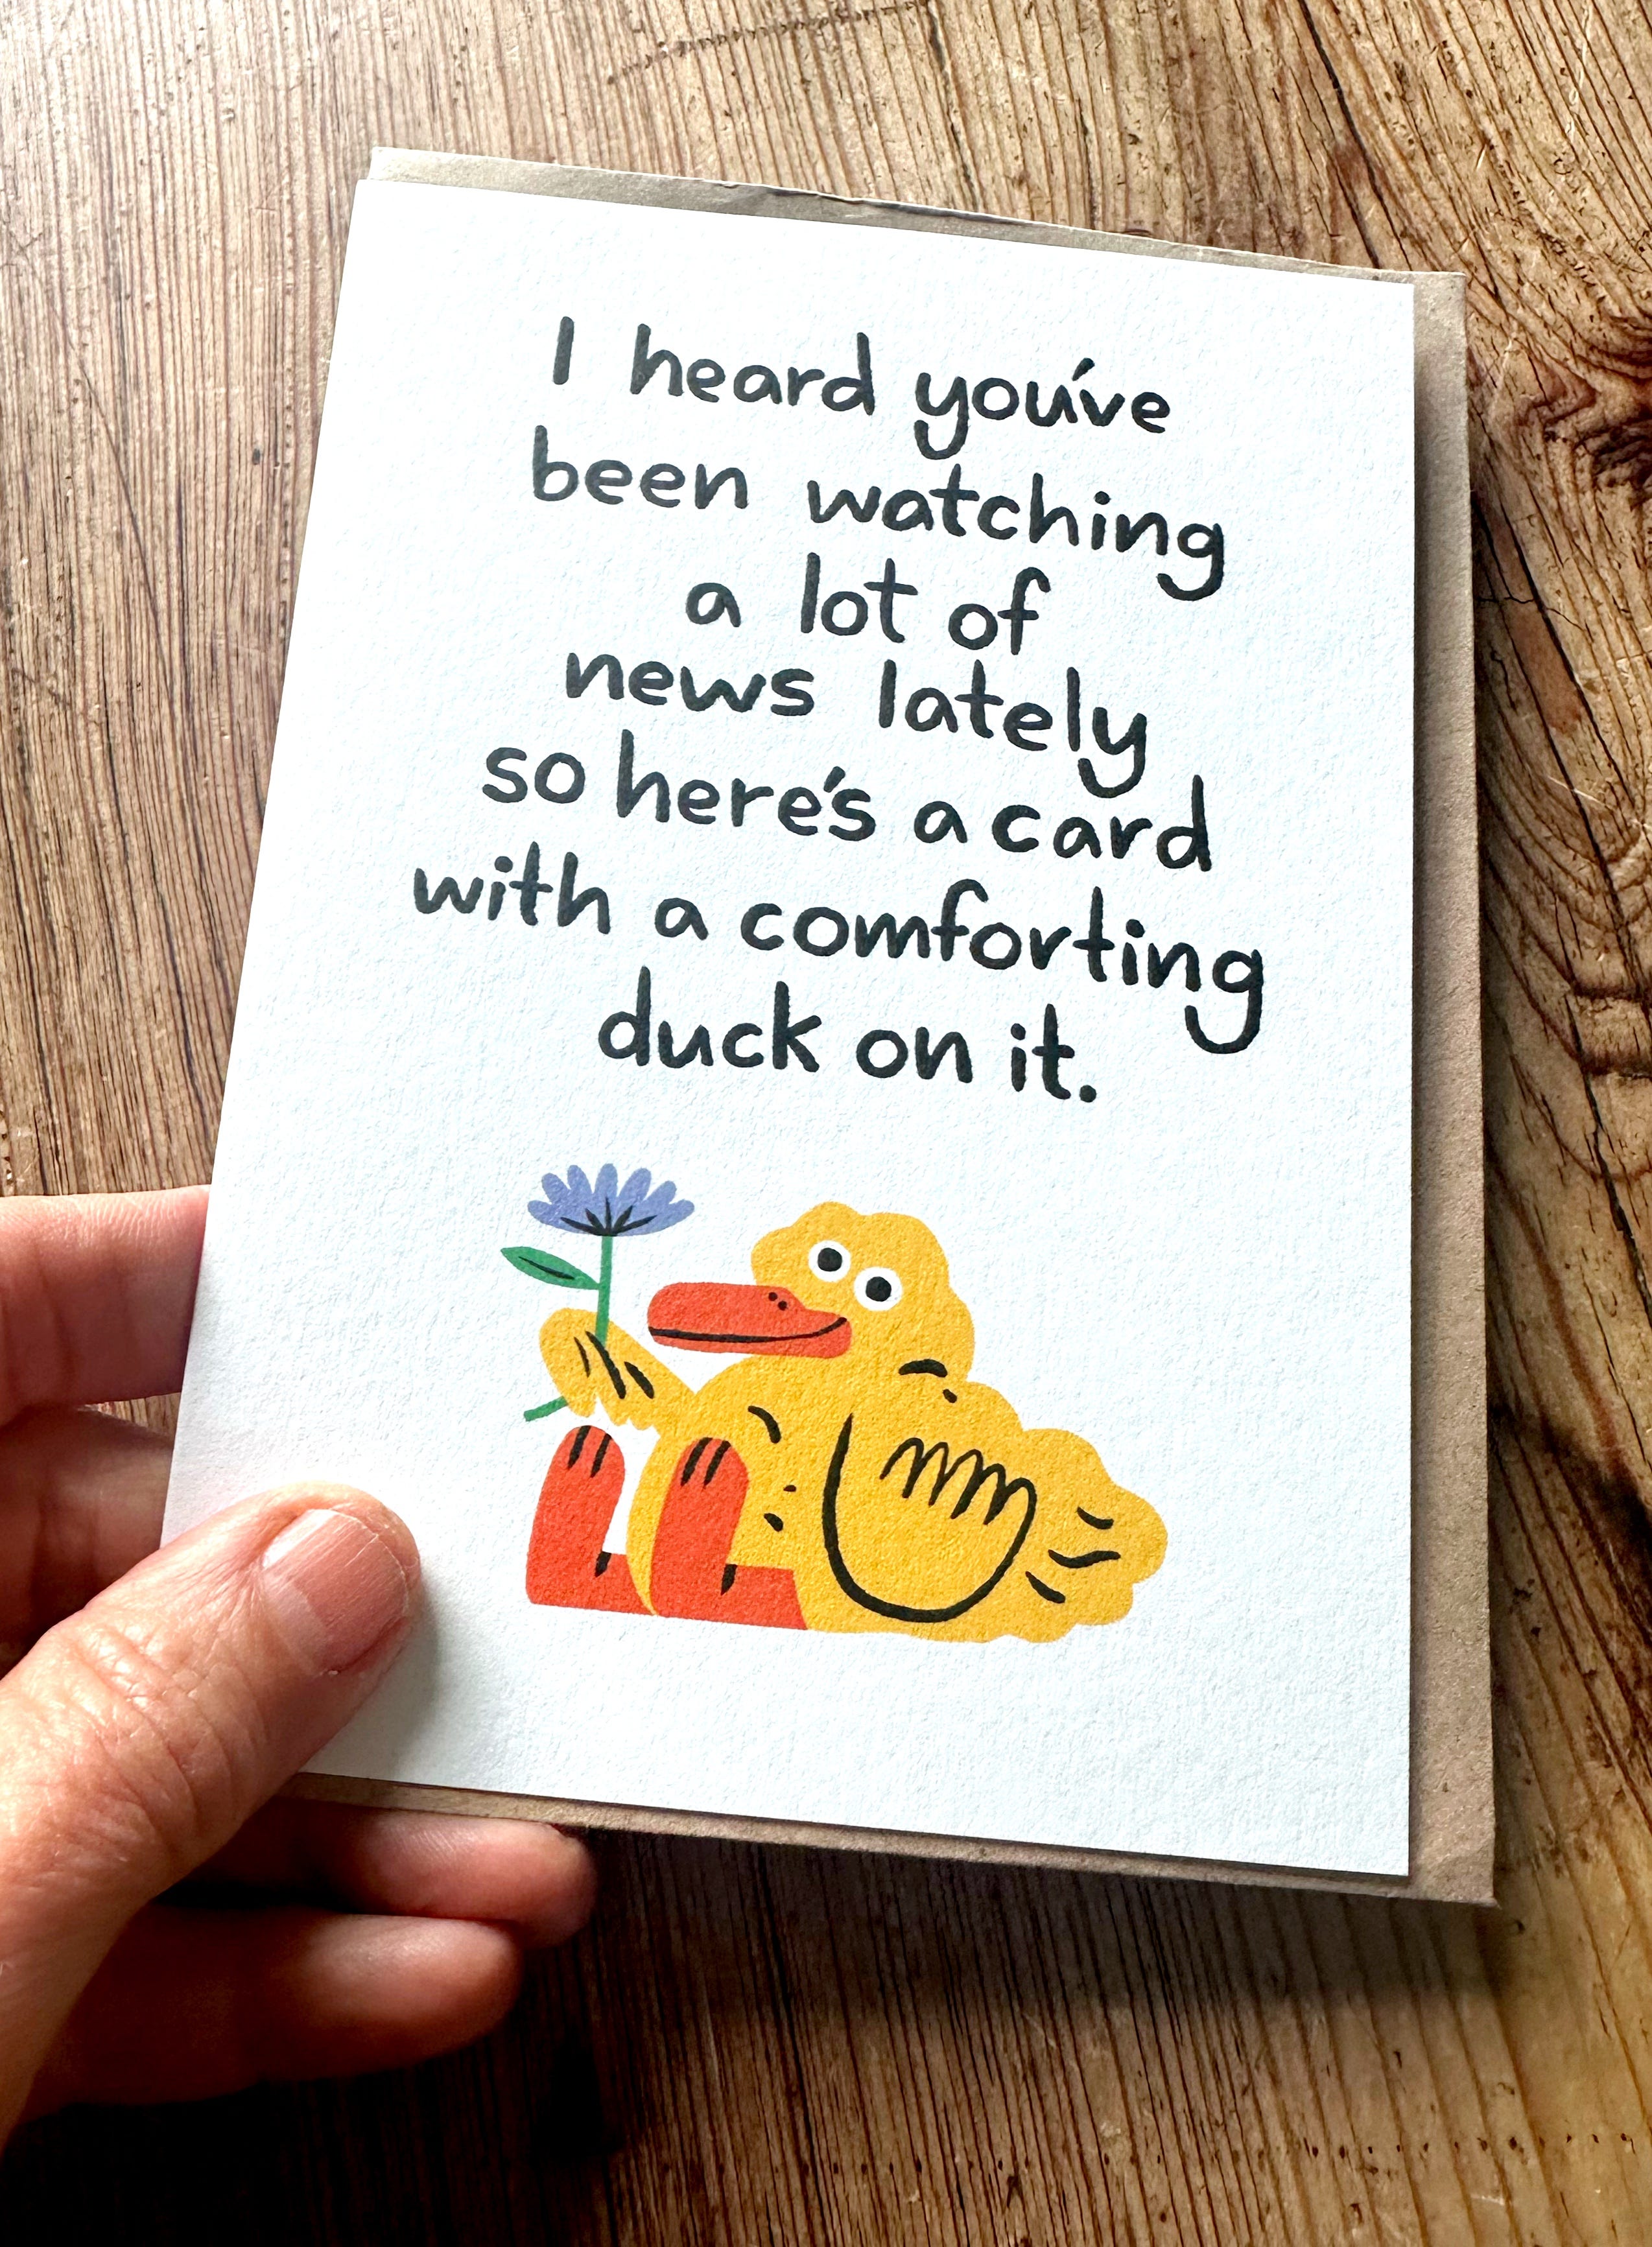 I heard you've
been watching
a lot of
news lately
so here's a card
with a comforting
duck on it.